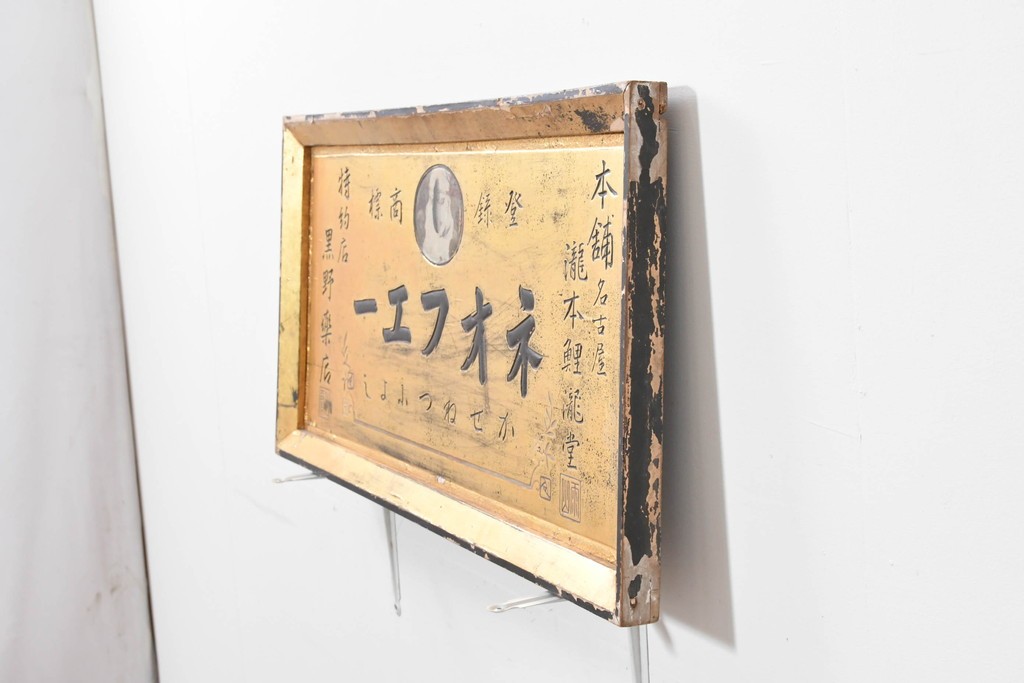 本舗 名古屋
瀧本鯉瀧堂
登録 商標
ネオフエー
かせねつふよし
特約店
黒野藥店